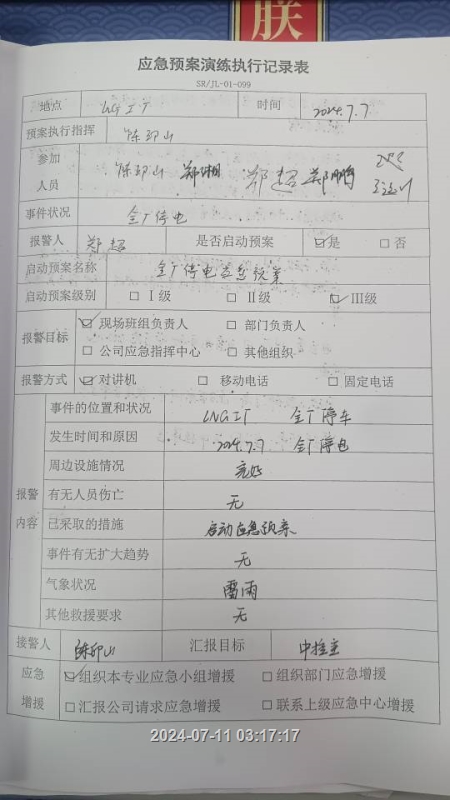 朕
应急预案演练执行记录表
SR/JL-01-099
地点 LNG工厂 时间 2024.7.7
预案执行指挥 陈印山
参加人员 陈印山 郑湘 郑超 郑鹏
事件状况 全厂停电
报警人 郑超 是否启动预案 ☑是 □否
启动预案名称 全厂停电应急预案
启动预案级别 □Ⅰ级 □Ⅱ级 ☑Ⅲ级
报警目标 ☑现场班组负责人 □部门负责人
□公司应急指挥中心 □其他组织
报警方式 ☑对讲机 □移动电话 □固定电话
报警内容
事件的位置和状况 LNG工厂 全厂停车
发生时间和原因 2024.7.7 全厂停电
周边设施情况 完好
有无人员伤亡 无
已采取的措施 启动应急预案
事件有无扩大趋势 无
气象状况 雷雨
其他救援要求 无
接警人 陈印山 汇报目标 中控室
应急增援 ☑组织本专业应急小组增援 □组织部门应急增援
□汇报公司请求应急增援 □联系上级应急中心增援
2024-07-11 03:17:17